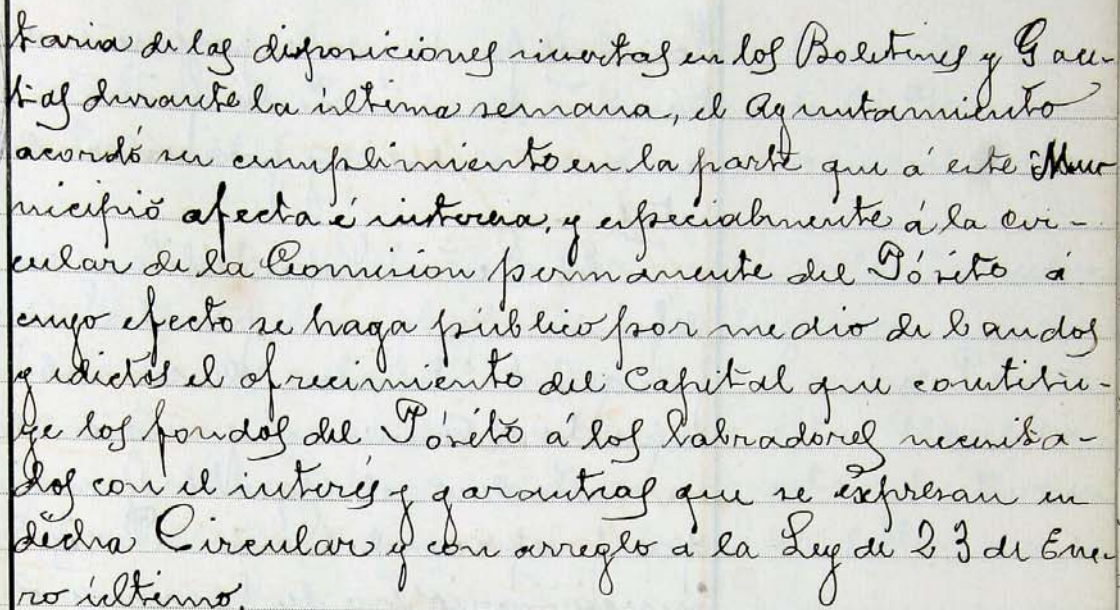 taria de las disposiciones insertas en los Boletines y Gace-
tas durante la última semana, el Ayuntamiento
acordó su cumplimiento en la parte que á este Mu-
nicipio afecta é interesa, y especialmente á la cir-
cular de la Comision permanente del Pósito á
cuyo efecto se haga público por medio de bandos
y edictos el ofrecimiento del Capital que constitu-
ye los fondos del Pósito á los labradores necesita-
dos con el interés y garantias que se expresan en
dicha Circular y con arreglo á la Ley de 23 de Ene-
ro último.